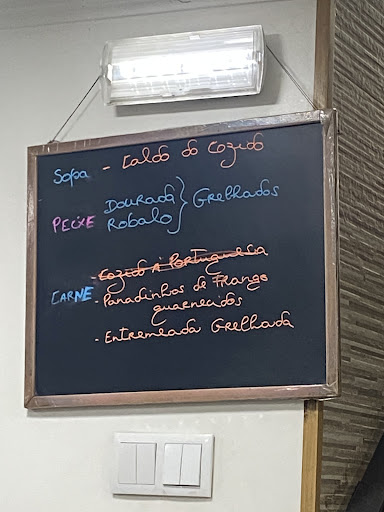 Sopa - Caldo do Cozido
Dourada
PEIXE Robalo } Grelhados
- Cozido à Portuguesa
CARNE - Panadinhos de Frango
guarnecidos
- Entremeada Grelhada